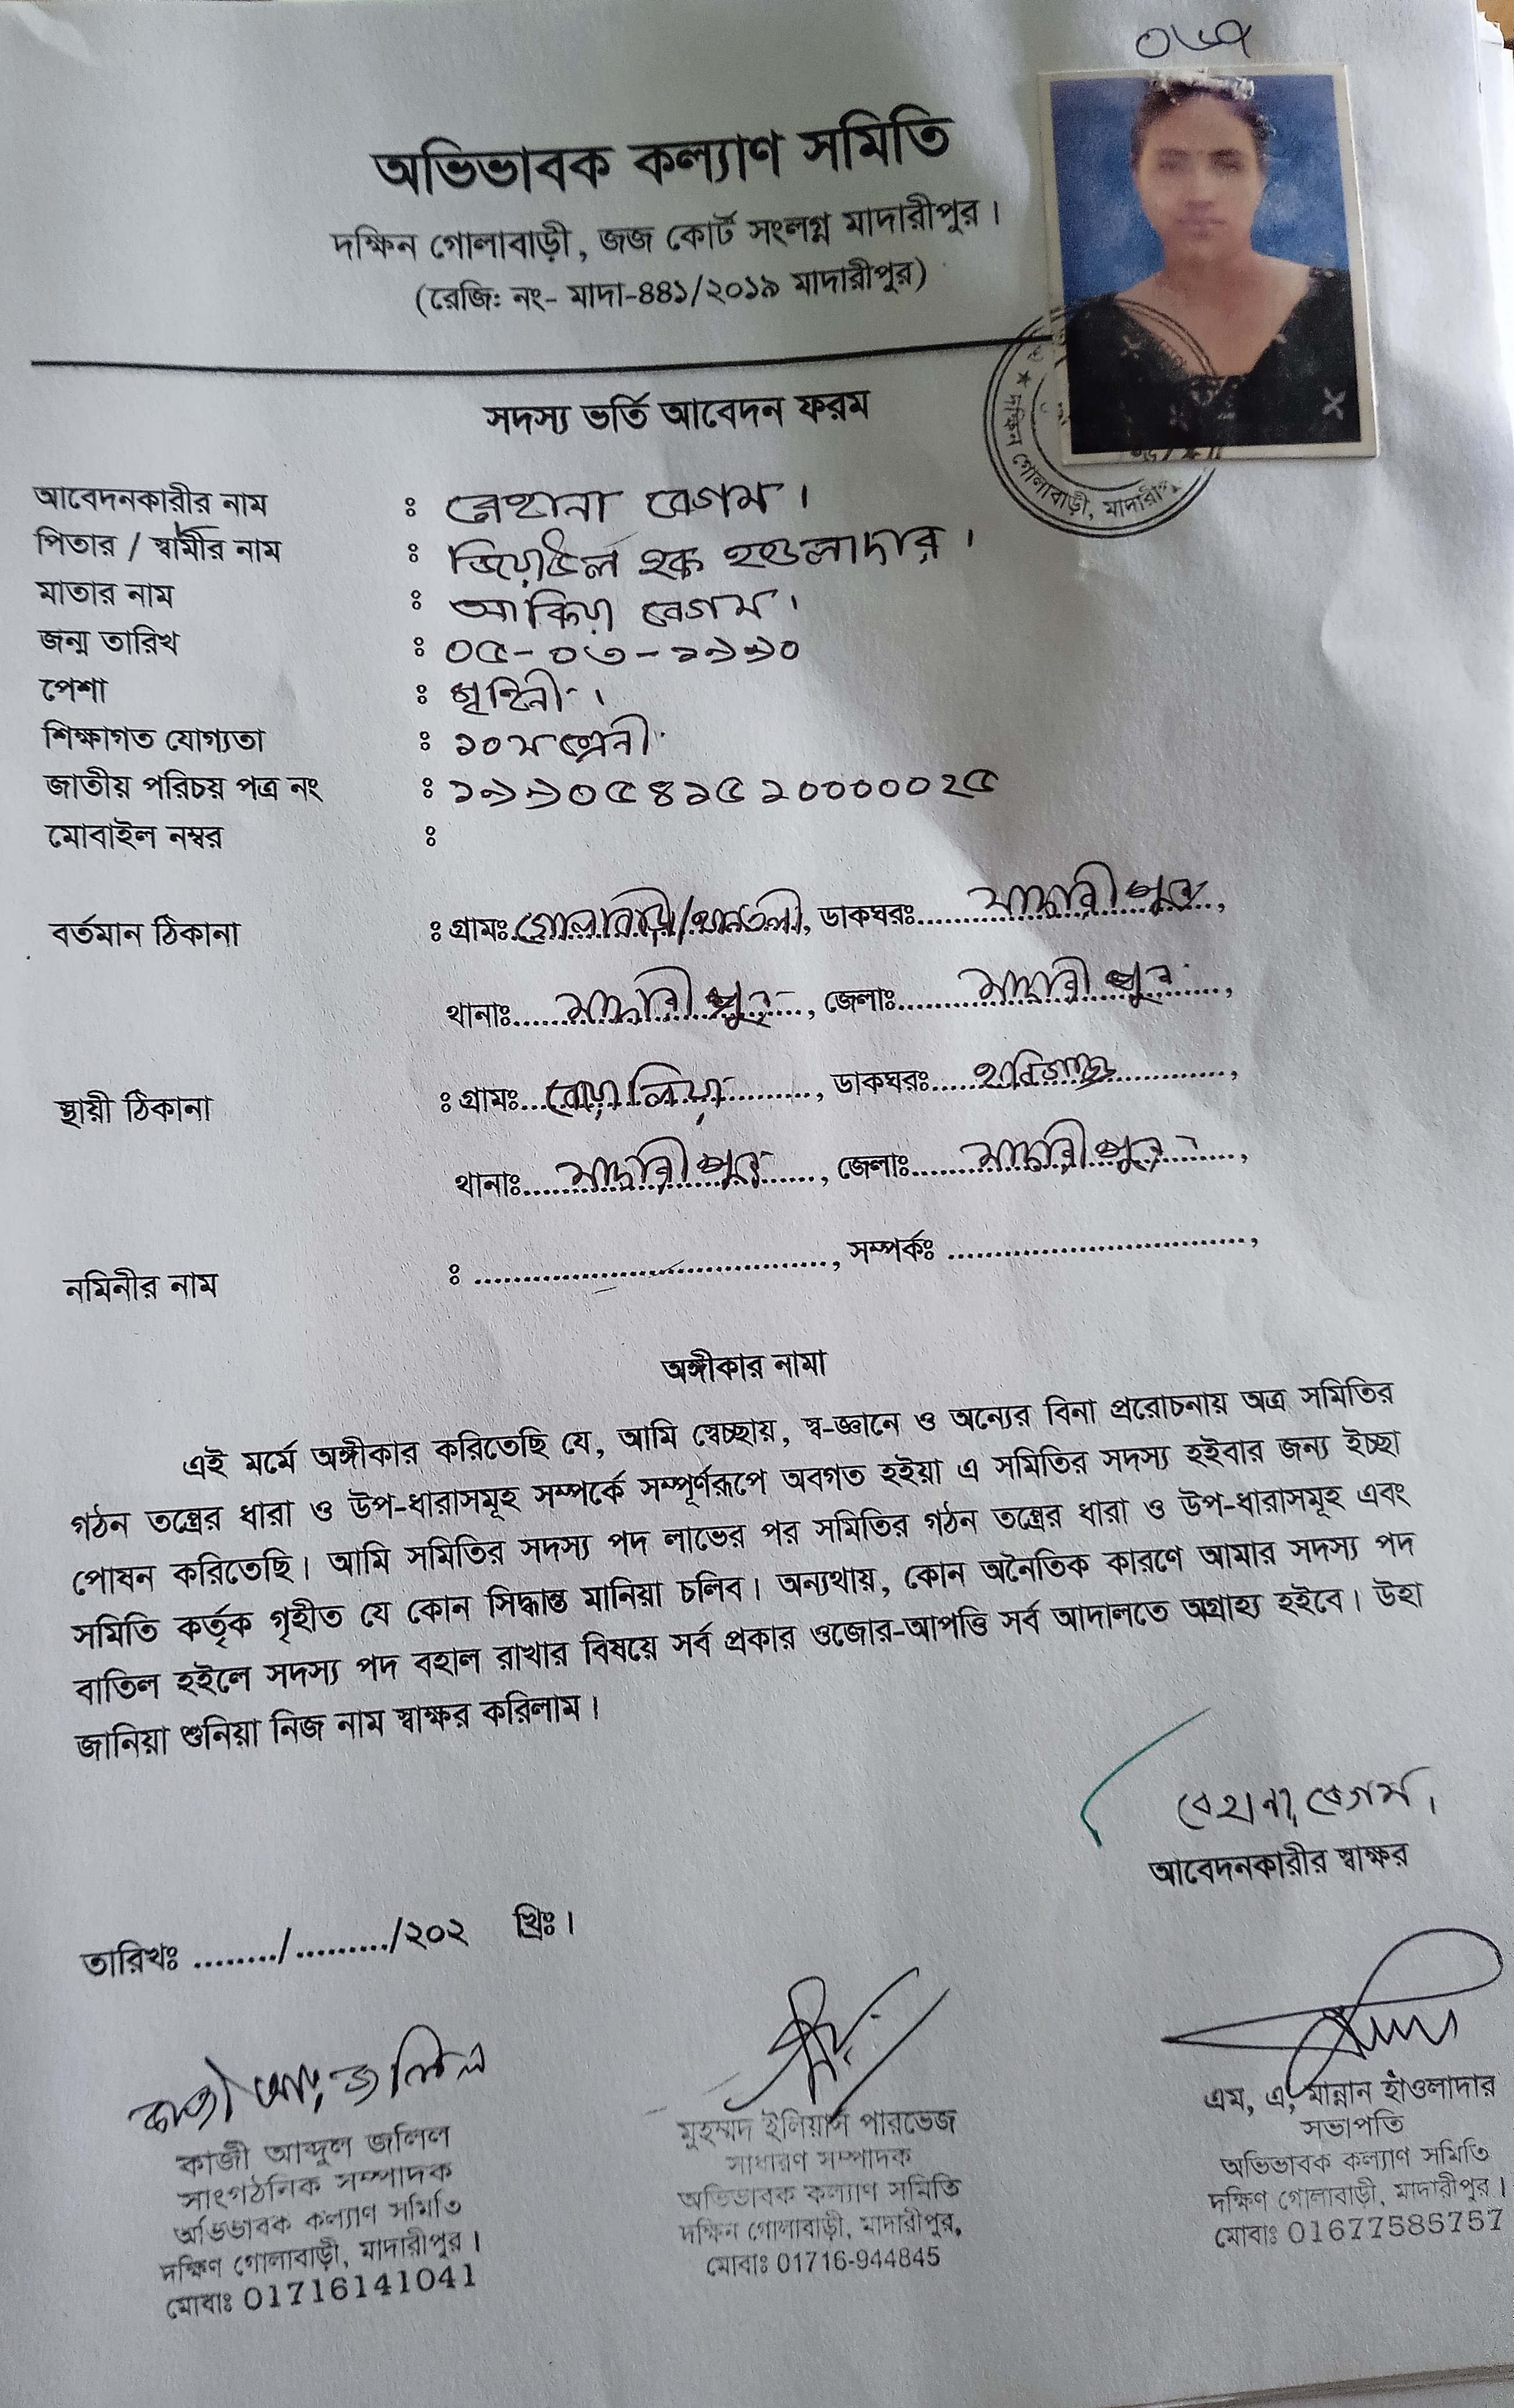 ০৬৭
অভিভাবক কল্যাণ সমিতি
দক্ষিন গোলাবাড়ী, জজ কোর্ট সংলগ্ন মাদারীপুর।
(রেজি: নং- মাদা-৪৪১/২০১৯ মাদারীপুর)
সদস্য ভর্তি আবেদন ফরম
দক্ষিন গোলাবাড়ী, মাদারী
আবেদনকারীর নাম : রেহানা বেগম।
পিতার / স্বামীর নাম : জিয়াউল হক হাওলাদার।
মাতার নাম : আকিয়া বেগম।
জন্ম তারিখ : ০৫-০৩-১৯৯০
পেশা : গৃহিনী।
শিক্ষাগত যোগ্যতা : ১০ম শ্রেনী
জাতীয় পরিচয় পত্র নং : ১৯৯০৫৪১৫২০০০০০২৫
মোবাইল নম্বর :
বর্তমান ঠিকানা : গ্রামঃ গোলাবাড়ী/, ডাকঘরঃ মাদারীপুর,
থানাঃ মাদারীপুর, জেলাঃ মাদারীপুর,
স্থায়ী ঠিকানা : গ্রামঃ, ডাকঘরঃ,
থানাঃ মাদারীপুর, জেলাঃ মাদারীপুর,
নমিনীর নাম : ...................................., সম্পর্কঃ ...............................,
অঙ্গীকার নামা
এই মর্মে অঙ্গীকার করিতেছি যে, আমি স্বেচ্ছায়, স্ব-জ্ঞানে ও অন্যের বিনা প্ররোচনায় অত্র সমিতির
গঠন তন্ত্রের ধারা ও উপ-ধারাসমূহ সম্পর্কে সম্পূর্ণরূপে অবগত হইয়া এ সমিতির সদস্য হইবার জন্য ইচ্ছা
পোষন করিতেছি। আমি সমিতির সদস্য পদ লাভের পর সমিতির গঠন তন্ত্রের ধারা ও উপ-ধারাসমূহ এবং
সমিতি কর্তৃক গৃহীত যে কোন সিদ্ধান্ত মানিয়া চলিব। অন্যথায়, কোন অনৈতিক কারণে আমার সদস্য পদ
বাতিল হইলে সদস্য পদ বহাল রাখার বিষয়ে সর্ব প্রকার ওজোর-আপত্তি সর্ব আদালতে অগ্রাহ্য হইবে। উহা
জানিয়া শুনিয়া নিজ নাম স্বাক্ষর করিলাম।
রেহানা বেগম।
আবেদনকারীর স্বাক্ষর
তারিখঃ ......../........./২০২ খ্রিঃ।
কাজী আঃ জলিল
কাজী আব্দুল জলিল
সাংগঠনিক সম্পাদক
অভিভাবক কল্যাণ সমিতি
দক্ষিণ গোলাবাড়ী, মাদারীপুর।
মোবাঃ 01716141041
মুহম্মদ ইলিয়াস পারভেজ
সাধারণ সম্পাদক
অভিভাবক কল্যাণ সমিতি
দক্ষিন গোলাবাড়ী, মাদারীপুর,
মোবাঃ 01716-944845
এম, এ, মান্নান হাঁওলাদার
সভাপতি
অভিভাবক কল্যাণ সমিতি
দক্ষিণ গোলাবাড়ী, মাদারীপুর।
মোবাঃ 01677585757